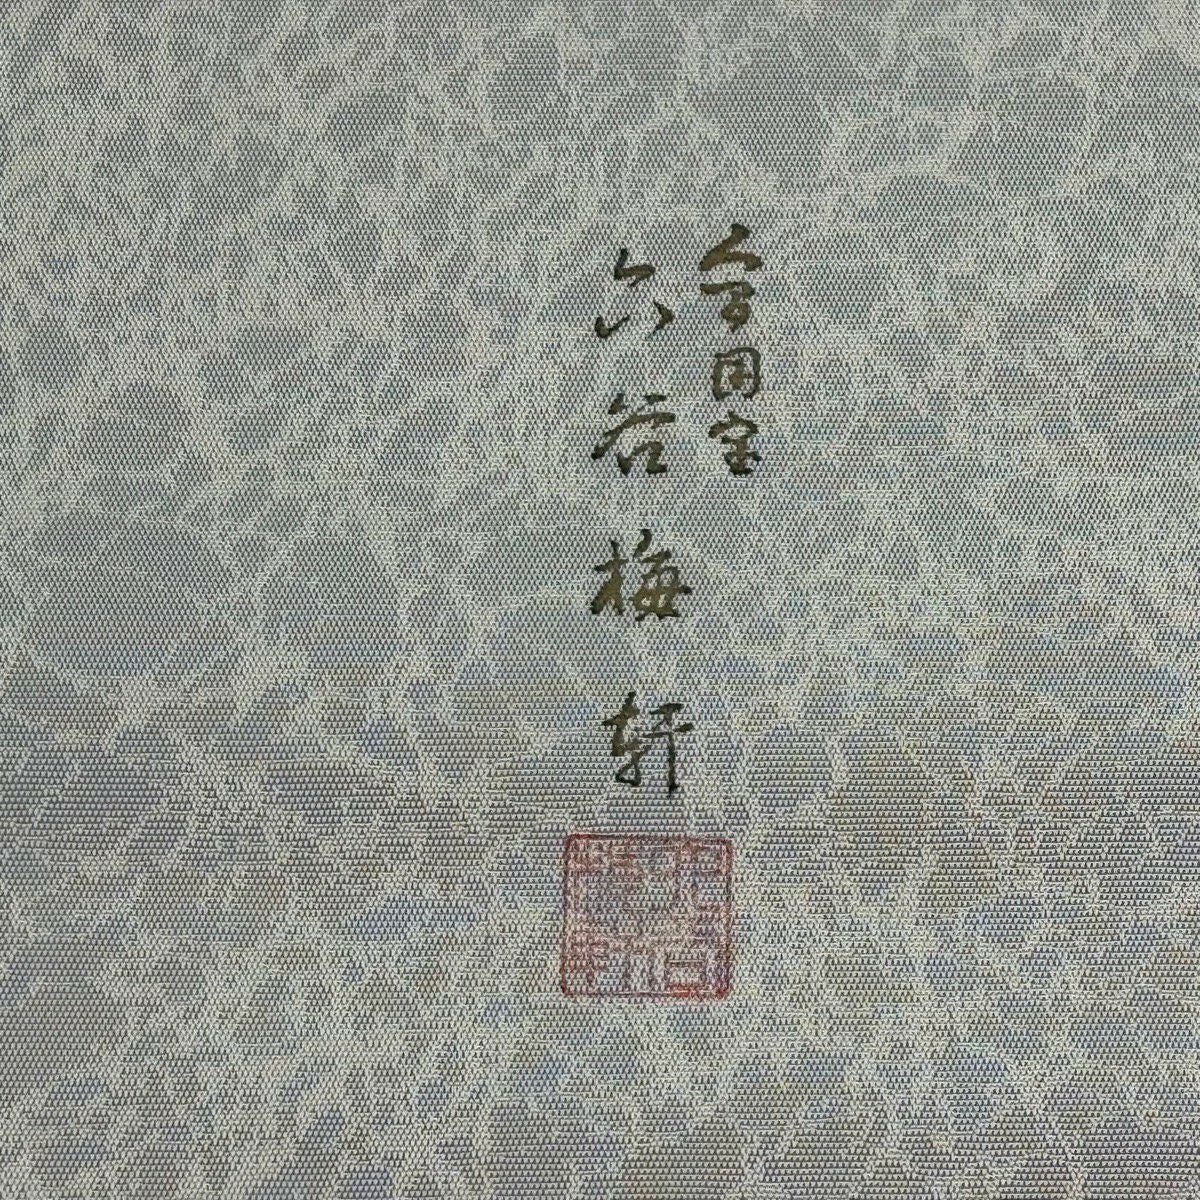 人間国宝
六谷梅軒